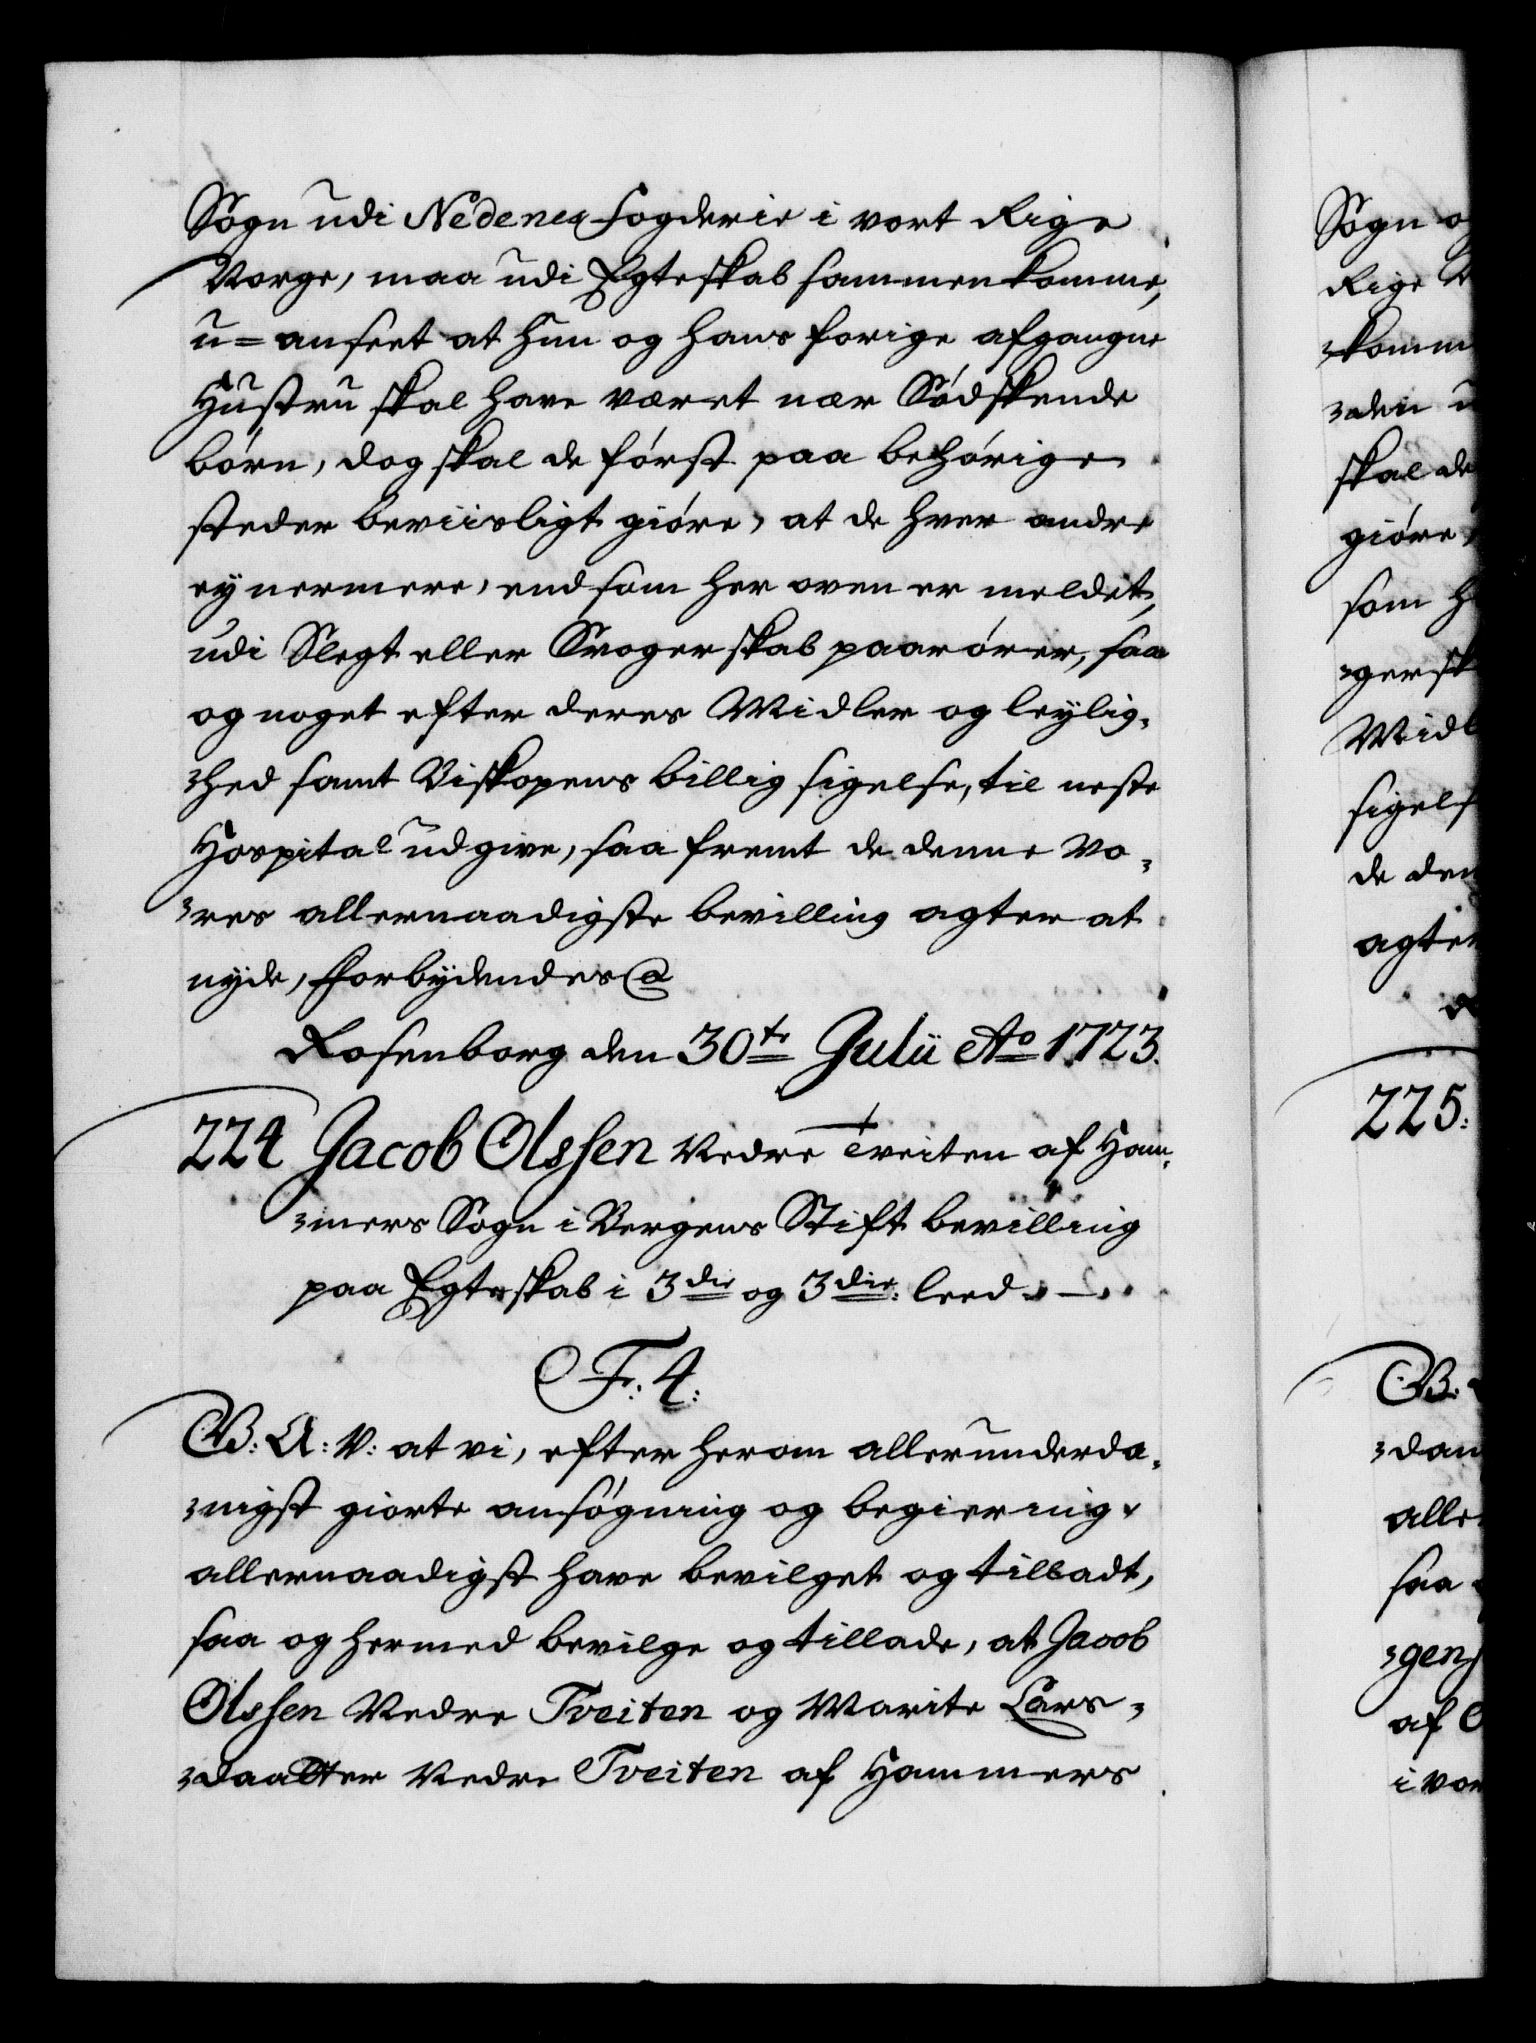 Sogn udi Nedenes fogderie i vort Rige
Norge, maa udi Egteskab sammenkomme,
u=anseet at hun og hans forige afgangne
Hustru skal have været nær Södskende
börn, dog skal de först paa behörige
steder beviisligt giöre, at de hver andre
ey nermere, end som her oven er meldet,
udi Slegt eller Svogerskab paarörer, saa
og noget efter deres Midler og leylig-
-hed samt Biskopens billig sigelse, til neste
Hospital udgive, saa fremt de denne Vo-
-res allernaadigste bevilling agter at
nyde, Forbydendes @
Rosenborg den 30te Julii Ao 1723.
224 Jacob Olssen Nedre Tveiten af Ham-
-mers Sogn i Bergens Stift bevilling
paa Egteskab i 3die og 3die: leed
F: 4:
G: A: V: at vi, efter herom allerunderda-
-nigst giorte ansögning og begiering,
allernaadigst have bevilget og tilladt,
saa og hermed bevilge og tillade, at Jacob
Olssen Nedre Tveiten og Marite Lars-
-daatter Nedre Tveiten af Hammers
Sogn o
Rige N
-komm
-den u
skal de
giöre,
som h
-gersk
Midl
sigels
de den
agter
225:
B:
-dan
aller
saa
-gens
af
i vor